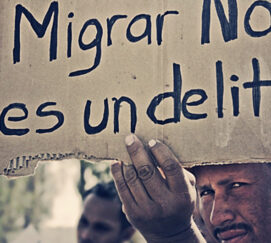 Migrar No
es un delit